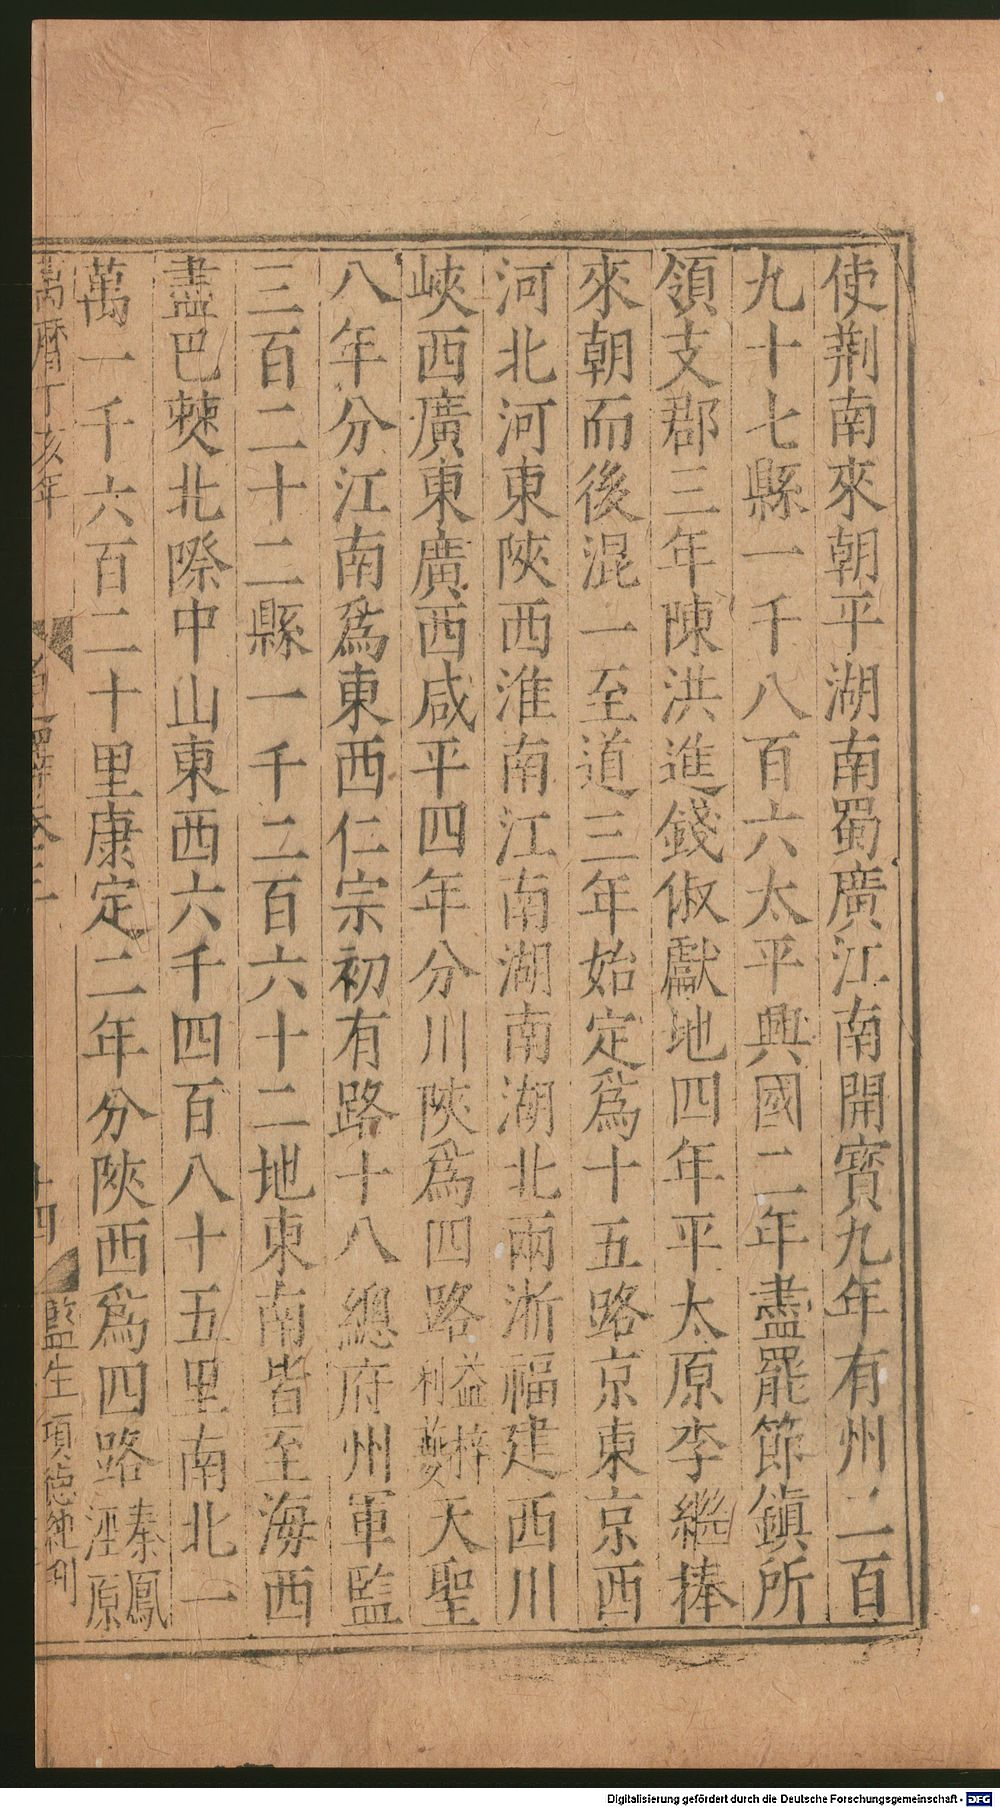 使荆南來朝平湖南蜀廣江南開寳九年有州二百
九十七縣一千八百六太平興國二年盡罷節鎮所
領支郡三年陳洪進錢俶獻地四年平太原李繼捧
來朝而後混一至道三年始定爲十五路京東京西
河北河東陜西淮南江南湖南湖北兩浙福建西川
峽西廣東廣西咸平四年分川陜爲四路益梓利夔天聖
八年分江南爲東西仁宗初有路十八總府州軍監
三百二十二縣一千二百六十二地東南皆至海西
盡巴僰北際中山東西六千四百八十五里南北一
萬一千六百二十里康定二年分陜西爲四路秦鳳涇原
萬曆丁亥年 卷三 十四 監生項德純刊
Digitalisierung gefördert durch die Deutsche Forschungsgemeinschaft - DFG